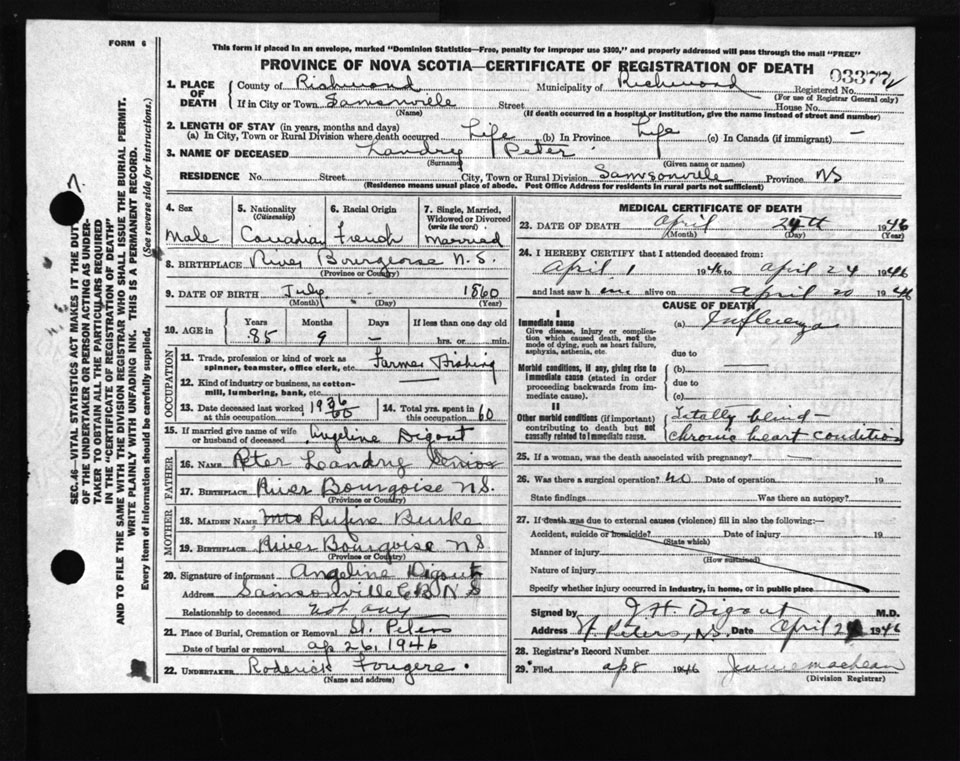 FORM 6
This form if placed in an envelope, marked "Dominion Statistics—Free, penalty for improper use $300," and properly addressed will pass through the mail "FREE"
PROVINCE OF NOVA SCOTIA—CERTIFICATE OF REGISTRATION OF DEATH
03377
1. PLACE OF DEATH
County of Richmond Municipality of Richmond Registered No.
(For use of Registrar General only)
If in City or Town Samsonville Street House No.
(Name) (If death occurred in a hospital or institution, give the name instead of street and number)
2. LENGTH OF STAY (in years, months and days)
(a) In City, Town or Rural Division where death occurred Life (b) In Province Life (c) In Canada (if immigrant) —
3. NAME OF DECEASED Landry Peter
(Surname) (Given name or names)
RESIDENCE No. Street City, Town or Rural Division Samsonville Province NS
(Residence means usual place of abode. Post Office Address for residents in rural parts not sufficient)
4. Sex Male
5. Nationality (Citizenship) Canadian
6. Racial Origin French
7. Single, Married, Widowed or Divorced (write the word) Married
8. BIRTHPLACE River Bourgoise N.S.
(Province or Country)
9. DATE OF BIRTH July - 1860
(Month) (Day) (Year)
10. AGE in Years 85 Months 9 Days — If less than one day old hrs. or min.
OCCUPATION
11. Trade, profession or kind of work as spinner, teamster, office clerk, etc. Farmer Fishing
12. Kind of industry or business, as cotton-mill, lumbering, bank, etc.
13. Date deceased last worked at this occupation 1936
14. Total yrs. spent in this occupation 60
15. If married give name of wife or husband of deceased Angeline Digout
FATHER
16. NAME Peter Landry Senior
17. BIRTHPLACE River Bourgoise N.S.
(Province or Country)
MOTHER
18. MAIDEN NAME Mrs Rufine Burke
19. BIRTHPLACE River Bourgoise N S
(Province or Country)
20. Signature of informant Angeline Digout
Address Samsonville C B N S
Relationship to deceased not any
21. Place of Burial, Cremation or Removal St. Peters
Date of burial or removal ap 26, 1946
22. UNDERTAKER Roderick Fougere
(Name and address)
MEDICAL CERTIFICATE OF DEATH
23. DATE OF DEATH April 24th 1946
(Month) (Day) (Year)
24. I HEREBY CERTIFY that I attended deceased from:
April 1 1946 to April 24 1946
and last saw him alive on April 20 1946
CAUSE OF DEATH
I
Immediate cause (a) Influenza
Give disease, injury or complication which caused death, not the mode of dying, such as heart failure, asphyxia, asthenia, etc.
due to
Morbid conditions, if any, giving rise to immediate cause (stated in order proceeding backwards from immediate cause).
(b)
due to
(c)
II
Other morbid conditions (if important) contributing to death but not causally related to immediate cause.
Totally blind -
chronic heart condition
25. If a woman, was the death associated with pregnancy? —
26. Was there a surgical operation? No Date of operation 19
State findings Was there an autopsy?
27. If death was due to external causes (violence) fill in also the following:—
Accident, suicide or homicide? Date of injury 19
(State which)
Manner of injury
(How sustained)
Nature of injury
Specify whether injury occurred in industry, in home, or in public place
Signed by J.H. Digout M.D.
Address St. Peters, N.S. Date April 1946
28. Registrar's Record Number
29. Filed ap 8 1946 Jennie maclean
(Division Registrar)
SEC. 46—VITAL STATISTICS ACT MAKES IT THE DUTY OF THE UNDERTAKER OR PERSON ACTING AS UNDERTAKER TO OBTAIN ALL THE PARTICULARS REQUIRED IN THE "CERTIFICATE OF REGISTRATION OF DEATH"
AND TO FILE THE SAME WITH THE DIVISION REGISTRAR WHO SHALL ISSUE THE BURIAL PERMIT.
WRITE PLAINLY WITH UNFADING INK. THIS IS A PERMANENT RECORD.
Every item of information should be carefully supplied. (See reverse side for instructions.)